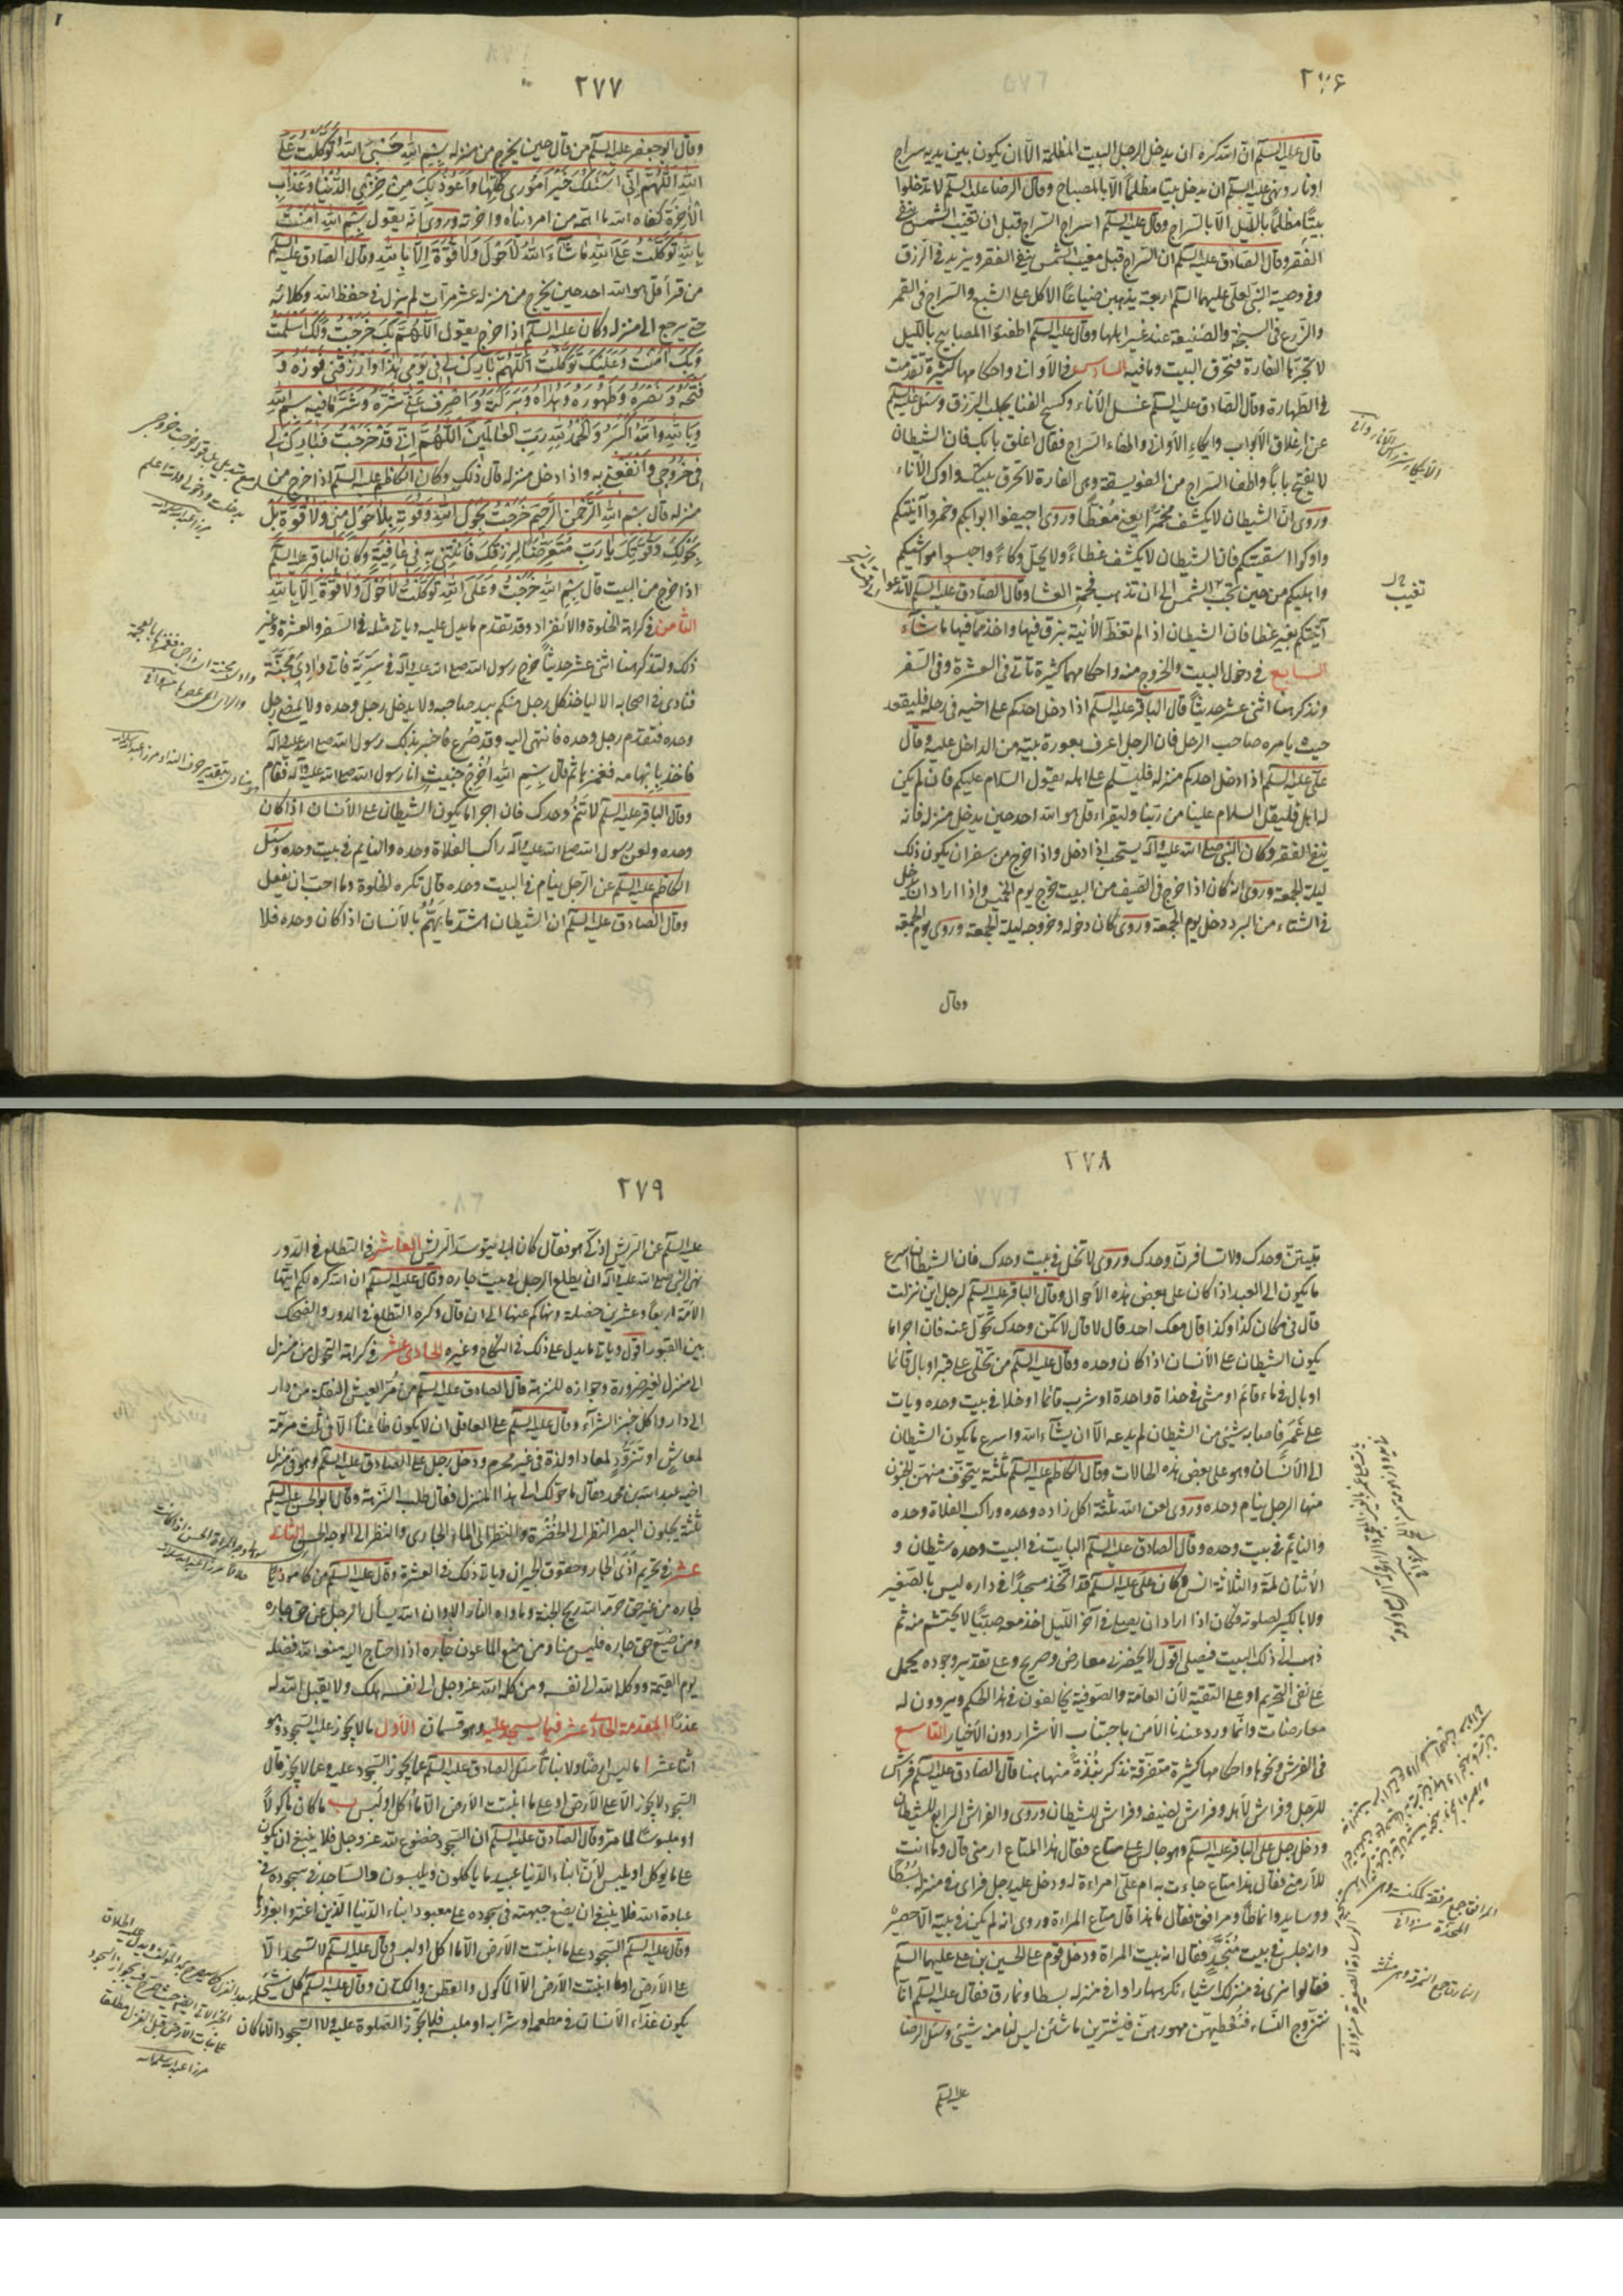 ٢٧۶
قال عليه السلم ان الله كره ان يدخل الرجل البيت المظلم الا ان يكون بين يديه سراج
او نار ونهى عليه السلم ان يدخل بيتا مظلما الا بالمصباح وقال الرضا عليه السلم لا تدخلوا
بيتا مظلما بالليل الا بالسراج وقال عليه السلم اسراج السراج قبل ان تغيب الشمس ينفى
الفقر وقال الصادق عليه السلم ان السراج قبل مغيب الشمس ينفى الفقر ويزيد فى الرزق
وفى وصية النبى لعلى عليهما السلم اربعة يذهبن ضياعا الاكل على الشبع والسراج فى القمر
والزرع فى السبخة والصنيعة عند غير اهلها وقال عليه السلم اطفئوا المصابيح بالليل
لا تجرها الفارة فتحرق البيت وما فيه السادس فى الاوانى واحكامها كثيرة تقدمت
فى الطهارة وقال الصادق عليه السلم غسل الاناء وكسح الفنا يجلب الرزق وسئل عليه السلم
عن اغلاق الابواب وايكاء الاوانى واطفاء السراج فقال اغلق بابك فان الشيطان
لا يفتح بابا واطف السراج من الفويسقة وهى الفارة لا تحرق بيتك واوك الاناء
وروى ان الشيطان لا يكشف مخمرا يعنى مغطا وروى اجيفوا ابوابكم وخمروا آنيتكم
واوكوا اسقيتكم فان الشيطان لا يكشف غطاء ولا يحل وكاء واحبسوا مواشيكم
واهليكم من حين تجب الشمس الى ان تذهب فحمة العشا وقال الصادق عليه السلم لا تدعوا
آنيتكم بغير غطا فان الشيطان اذا لم تغط الانية بزق فيها واخذ مما فيها ما شاء
السابع فى دخول البيت والخروج منه واحكامها كثيرة تاتى فى العشرة وفى السفر
ونذكر هنا اثنى عشر حديثا قال الباقر عليه السلم اذا دخل احدكم على اخيه فى رحله فليقعد
حيث يامره صاحب الرحل فان الرجل اعرف بعورة بيته من الداخل عليه وقال
على عليه السلم اذا دخل احدكم منزله فليسلم على اهله يقول السلام عليكم فان لم يكن
له اهل فليقل السلام علينا من ربنا وليقراء قل هو الله احد حين يدخل منزله فانه
ينفى الفقر وكان النبى صلى الله عليه وآله يستحب اذا دخل واذا خرج من سفر ان يكون ذلك
ليلة الجمعة وروى انه كان اذا خرج فى الصيف من البيت خرج يوم الخميس واذا اراد ان يدخل
فى الشتاء من البرد دخل يوم الجمعة وروى كان دخوله وخروجه ليلة الجمعة وروى يوم الجمعة
وقال
تغيب
٢٧٧
وقال ابو جعفر عليه السلم من قال حين يخرج من منزله بسم الله حسبى الله توكلت على
الله اللهم انى اسئلك خير امورى كلها واعوذ بك من خزى الدنيا وعذاب
الاخرة كفاه الله ما اهمه من امر دنياه واخرته وروى انه يقول بسم الله امنت
بالله توكلت على الله ما شاء الله لا حول ولا قوة الا بالله وقال الصادق عليه السلم
من قرأ قل هو الله احد حين يخرج من منزله عشر مرات لم يزل فى حفظ الله وكلائه
حتى يرجع الى منزله وكان عليه السلم اذا خرج يقول اللهم بك خرجت ولك اسلمت
وبك آمنت وعليك توكلت اللهم بارك لى فى يومى هذا وارزقنى فوزه و
فتحه ونصره وطهوره وهداه وبركته واصرف عنى شره وشر ما فيه بسم الله
وبالله والله اكبر والحمد لله رب العالمين اللهم انى قد خرجت فبارك لى
فى خروجى وانفعنى به واذا دخل منزله قال ذلك وكان الكاظم عليه السلم اذا خرج من
منزله قال بسم الله الرحمن الرحيم خرجت بحول الله وقوته بلا حول منى ولا قوة بل
بحولك وقوتك يا رب متعرضا لرزقك فاتنى به فى عافية وكان الباقر عليه السلم
اذا خرج من البيت قال بسم الله خرجت وعلى الله توكلت لا حول ولا قوة الا بالله
الثامن فى كراهة الخلوة والانفراد وقد تقدم ما يدل عليه وياتى مثله فى السفر والعشرة وغير
ذلك ولنذكر هنا اثنى عشر حديثا خرج رسول الله صلى الله عليه وآله فى سرية فاتى وادى مجنة
فنادى فى اصحابه الا لياخذ كل رجل منكم بيد صاحبه ولا يدخل رجل وحده ولا يمضى رجل
وحده فتقدم رجل وحده فانتهى اليه وقد صرع فاخبر بذلك رسول الله صلى الله عليه وآله
فاخذ بابهامه فغمزها ثم قال بسم الله اخرج خبيث انا رسول الله صلى الله عليه وآله فقام
وقال الباقر عليه السلم لا تنم وحدك فان اجرا ما يكون الشيطان على الانسان اذا كان
وحده ولعن رسول الله صلى الله عليه وآله راكب الفلاة وحده والنايم فى بيت وحده وسئل
الكاظم عليه السلم عن الرجل ينام فى البيت وحده قال تكره الخلوة وما احب ان يفعل
وقال الصادق عليه السلم ان الشيطان اشد ما يهم بالانسان اذا كان وحده فلا
٢٧٨
تبيتن وحدك ولا تسافرن وحدك وروى لا تخل فى بيت وحدك فان الشيطان اسرع
ما يكون الى العبد اذا كان على بعض هذه الاحوال وقال الباقر عليه السلم لرجل اين نزلت
قال فى مكان كذا وكذا قال معك احد قال لا قال لا تكن وحدك تحول عنه فان اجرا ما
يكون الشيطان على الانسان اذا كان وحده وقال عليه السلم من تخلى على قبر او بال قائما
او بال فى ماء قائم او مشى فى حذاء واحدة او شرب قائما او خلا فى بيت وحده وبات
على غمر فاصابه شىء من الشيطان لم يدعه الا ان يشاء الله واسرع ما يكون الشيطان
الى الانسان وهو على بعض هذه الحالات وقال الكاظم عليه السلم ثلثة يتخوف منهن الجنون
منها الرجل ينام وحده وروى لعن الله ثلثة اكل زاده وحده وراكب الفلاة وحده
والنايم فى بيت وحده وقال الصادق عليه السلم البايت فى البيت وحده شيطان و
الاثنان لمة والثلاثة انس وكان على عليه السلم قد اتخذ مسجدا فى داره ليس بالصغير
ولا بالكبير لصلوته وكان اذا اراد ان يصلى فى آخر الليل اخذ معه صبيا لا يحتشم منه ثم
ذهب الى ذلك البيت فيصلى اقول لا يحضرنى معارض وصريح وعلى تقدير وجوده يحمل
على نفى التحريم او على التقية لان العامة والصوفية يخالفون فى هذا الحكم ويروون له
معارضات وانما ورد عندنا الامر باجتناب الاشرار دون الاخيار التاسع
فى الفرش ونحوها واحكامها كثيرة متفرقة نذكر نبذة منها هنا قال الصادق عليه السلم فراش
للرجل وفراش لاهله وفراش لضيفه وفراش للشيطان وروى والفراش الرابع للشيطان
ودخل رجل على الباقر عليه السلم وهو جالس على متاع فقال هذا المتاع ارمنى قال وما انت
للارمنى فقال هذا متاع جاءت به ام على امراءة له ودخل عليه رجل فراى فى منزله بسطا
ووسايد وانماطا ومرافق فقال ما هذا قال متاع المراءة وروى انه لم يكن فى بيته الا حصير
وانه جلس فى بيت منجد فقال انه بيت المراة ودخل قوم على الحسين بن على عليهما السلم
فقالوا نرى فى منزلك اشياء نكرهها راوا فى منزله بسطا ونمارق فقال عليه السلم انا
نتزوج النساء فنعطيهن مهورهن فيشترين ما شئن ليس لنا منه شىء وسئل الرضا
عليه السلم
٢٧٩
عليه السلم عن الريش اذكى هو فقال كان ابى يتوسد الريش العاشر فى التطلع فى الدور
نهى النبى صلى الله عليه وآله ان يطلع الرجل فى بيت جاره وقال عليه السلم ان الله كره لكم ايتها
الامة اربعا وعشرين خصلة ونهاكم عنها الى ان قال وكره التطلع فى الدور والضحك
بين القبور اقول وياتى ما يدل على ذلك فى النكاح وغيره الحادى عشر فى كراهة التحول من منزل
الى منزل لغير ضرورة وجوازه للنزهة قال الصادق عليه السلم من مر العيش النقلة من دار
الى دار واكل خبز الشراء وقال عليه السلم على العاقل ان لا يكون ظاعنا الا فى ثلث مرمة
لمعاش او تزود لمعاد او لذة فى غير محرم ودخل رجل على الصادق عليه السلم وهو فى منزل
اخيه عبد الله بن محمد فقال ما حولك الى هذا المنزل فقال طلب النزهة وقال ابو الحسن عليه السلم
ثلثة يجلون البصر النظر الى الخضرة والنظر الى الماء الجارى والنظر الى الوجه الحسن الثانى
عشر فى تحريم اذى الجار وحقوق الجيران وياتى ذلك فى العشرة وقال عليه السلم من كان موذيا
لجاره من غير حق حرمه الله ريح الجنة وماواه النار الا وان الله يسأل الرجل عن حق جاره
ومن ضيع حق جاره فليس منا ومن منع الماعون جاره اذا احتاج اليه منعه الله فضله
يوم القيمة ووكله الله الى نفسه ومن وكله الله عز وجل الى نفسه هلك ولا يقبل الله له
عذرا المقدمة الحادى عشر فيما يسجد عليه وهو قسمان الاول ما لا يجوز عليه السجود وهو
اثنا عشر ا ما ليس ارضا ولا نباتا سئل الصادق عليه السلم عما يجوز السجود عليه وعما لا يجوز قال
السجود لا يجوز الا على الارض او على ما انبتت الارض الا ما اكل او لبس ب ما كان ماكولا
او ملبوسا لما مر وقال الصادق عليه السلم ان السجود خضوع لله عز وجل فلا ينبغى ان يكون
على ما يوكل او يلبس لان ابناء الدنيا عبيد ما ياكلون ويلبسون والساجد فى سجوده فى
عبادة الله فلا ينبغى ان يضع جبهته فى سجوده على معبود ابناء الدنيا الذين اغتروا بغرورها
وقال عليه السلم السجود على ما انبتت الارض الا ما اكل او لبس وقال عليه السلم لا تسجد الا
على الارض او ما انبتت الارض الا الماكول والقطن والكتان وقال عليه السلم كل شىء
يكون غذاء الانسان فى مطعمه او مشرابه او ملبسه فلا تجوز الصلوة عليه ولا السجود الا ما كان